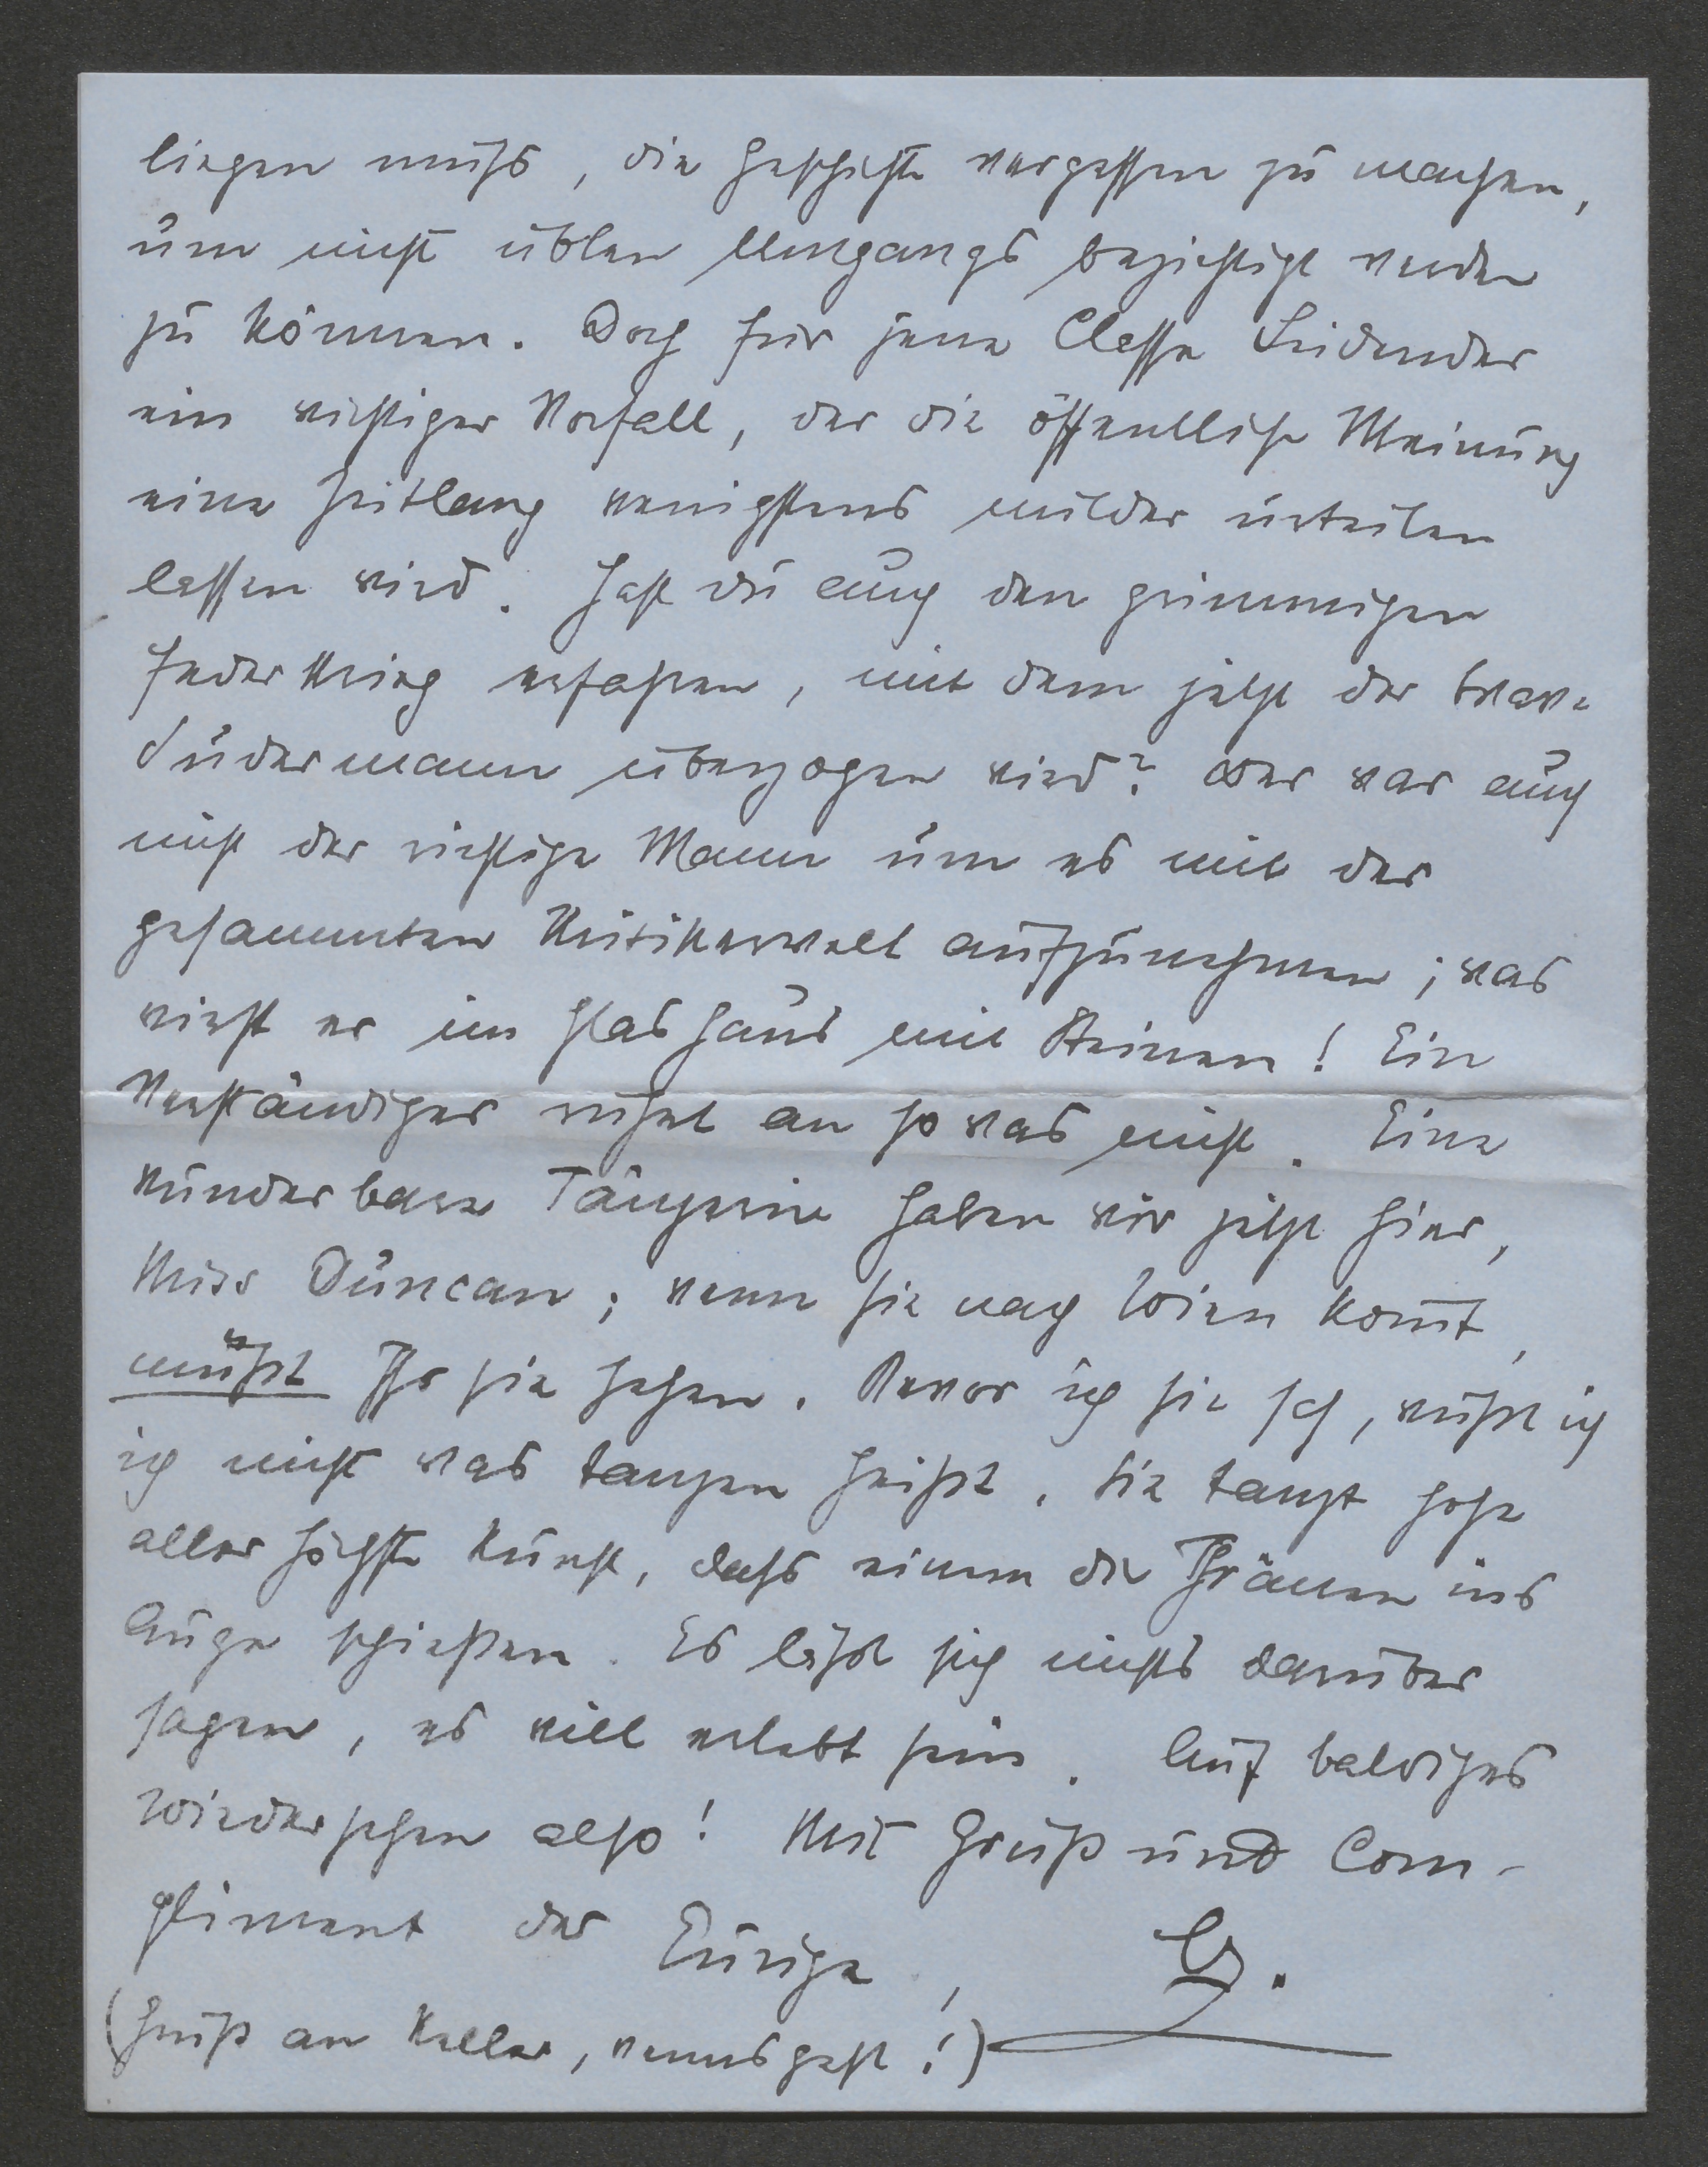 liegen muß, die Geschichte vergessen zu machen,
um nicht üblen Umgangs bezichtigt werden
zu können. Doch für jene Classe Leidender
ein wichtiger Vorfall, der die öffentliche Meinung
eine Zeitlang wenigstens milder urteilen
lassen wird. Hast du auch den grimmigen
Federkrieg erfahren, mit dem jetzt der brave
Sudermann überzogen wird? Der war auch
nicht der richtige Mann um es mit der
gesammten Kritikerwelt aufzunehmen; was
wirft er im Glashaus mit Steinen! Ein
Verständiger rühret an so was nicht. Eine
wunderbare Tänzerin haben wir jetzt hier,
Miss Duncan; wenn sie nach Wien komt,
müßt Ihr sie sehen. Bevor ich sie sah, wußt ich
ich nicht was tanzen heißt. Sie tanzt hohe
allerhöchste Kunst, dass einem die Thränen ins
Auge schießen. Es läßt sich nichts darüber
sagen, es will erlebt sein. Auf baldiges
Wiedersehen also! Mit Gruß und Com-
pliment der Eurige,
(Gruß an Keller, wenns geht!)